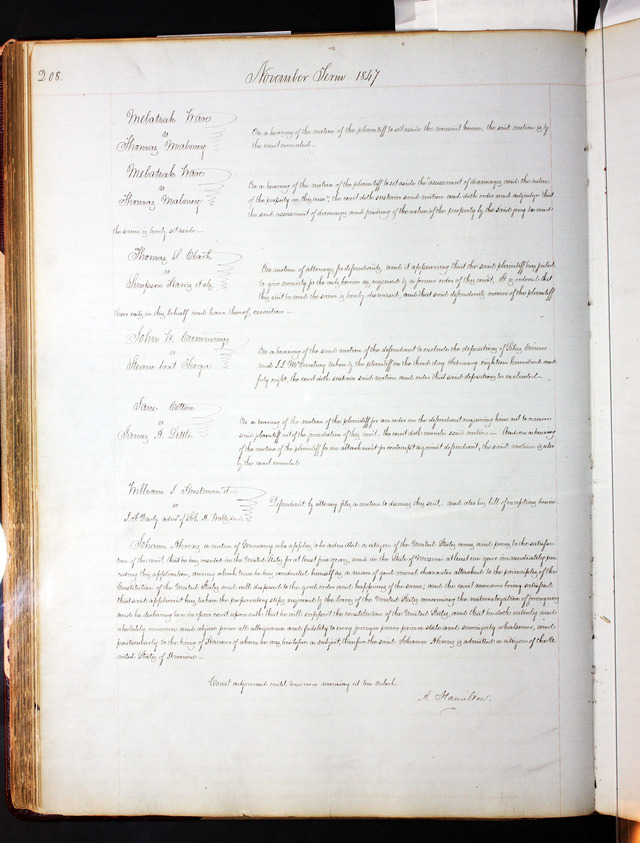 208.
November Term 1847
Melatiah Ware
vs
Thomas Maloney
On a hearing of the motion of the plaintiff to set aside the nonsuit herein, the said motion is by
the court overruled.
Melatiah Ware
vs
Thomas Maloney
On a hearing of the motion of the plaintiff to set aside the assessment of damages and the value
of the property in this case, the court doth sustain said motion and doth order and adjudge that
the said assessment of damages and finding of the value of the property by the said jury be and
the same is hereby set aside.
Thomas S. Clark
vs
Simpson Harris et al
On motion of attorney for defendants and it appearing that the said plaintiff has failed
to give security for the costs herein as required by a former order of this court. It is ordered that
this suit be and the same is hereby dismissed, and that said defendants recover of the plaintiff
their costs in this behalf and have thereof execution.
John W. Cummings
vs
Steam boat Tioga
On a hearing of the motion of the defendant to exclude the depositions of
and taken by the plaintiff on the third day of February eighteen hundred and
forty eight, the court doth sustain said motion and order that said depositions be excluded.
Jane Cotton
vs
James A. Little
On a hearing of the motion of the plaintiff for an order on the defendant requiring him not to remove
said plaintiff out of the jurisdiction of this court, the court doth overrule said motion. And on a hearing
of the motion of the plaintiff for an attachment for contempt against defendant, the said motion is also
by the court overruled
William J.
vs
Defendant by attorney files a motion to dismiss this suit and also his bill of exceptions herein
Johann Ahrens a native of Germany who applies to be admitted a citizen of the United States comes and proves to the satisfac-
tion of the court, that he has resided in the United States for at least five years, and in the State of Missouri at least one year immediately pre-
ceding this application, during which time he has conducted himself as a man of good moral character attached to the principles of the
Constitution of the United States and well disposed to the good order and happiness of the same; and the court moreover being satisfied
that said applicant has taken the preparatory steps required by the laws of the United States concerning the naturalization of foreigners
and he declaring here in open court upon oath that he will support the constitution of the United States, and that he doth entirely and
absolutely renounce and abjure forever all allegiance and fidelity to every foreign power prince state and sovereignty whatsoever, and
particularly to the King of Hanover of whom he was heretofore a subject, therefore the said Johann Ahrens is admitted a citizen of the U-
nited States of America.
Court adjourned until tomorrow morning at ten o'clock
A. Hamilton.